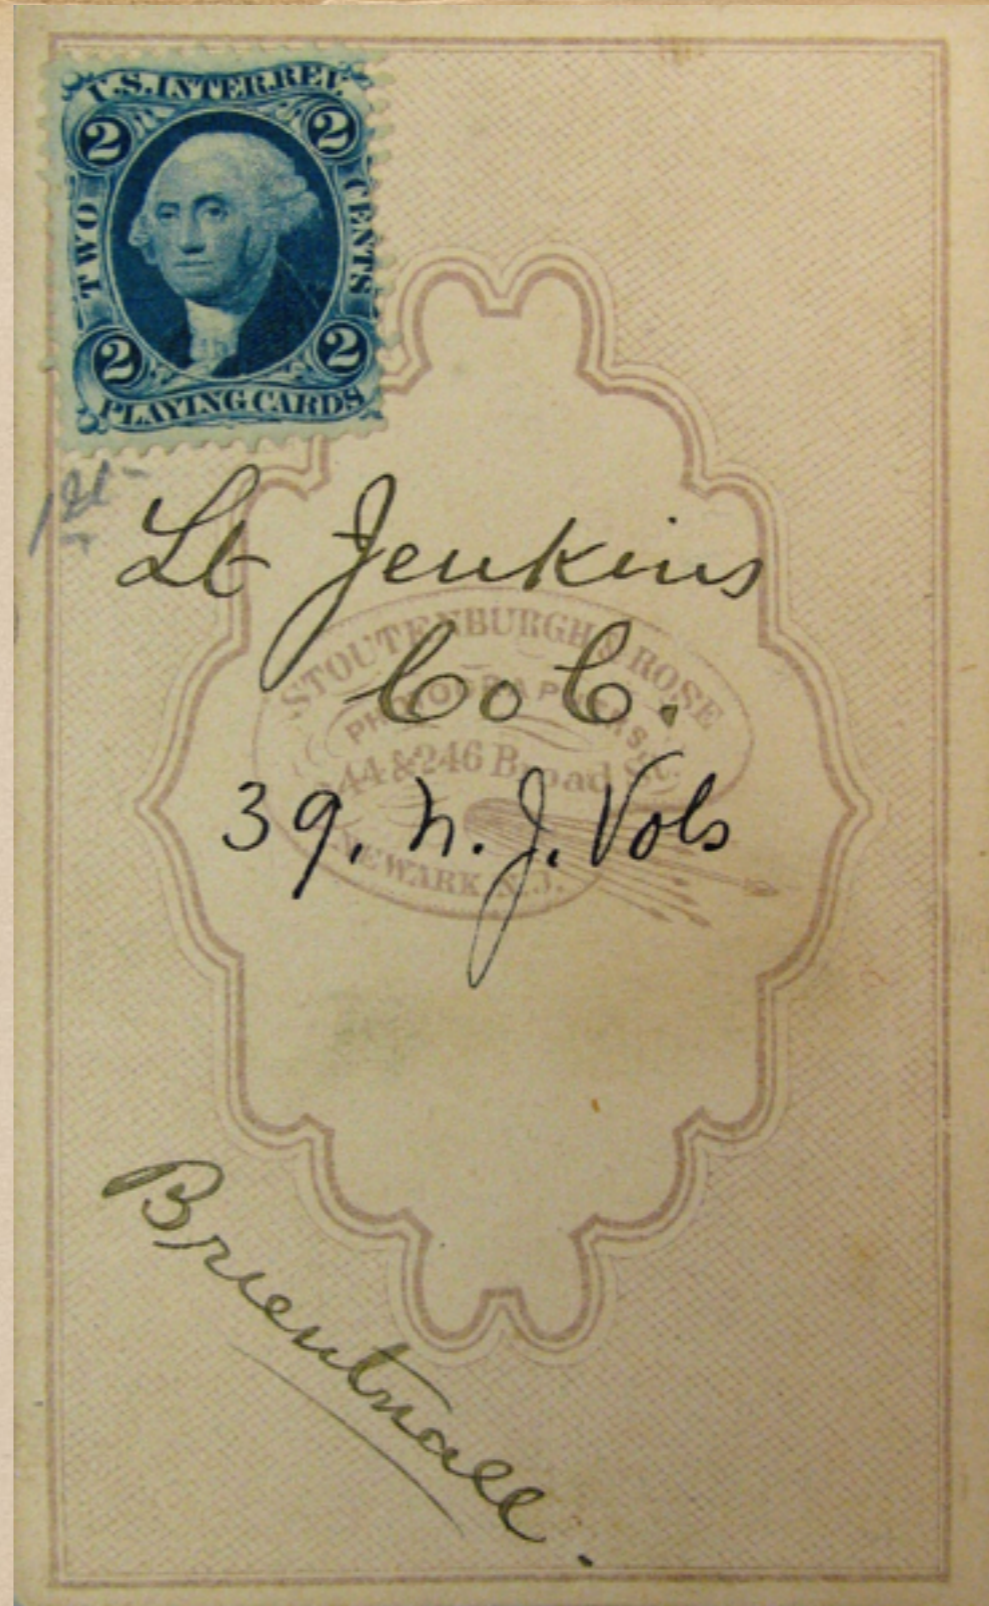 U.S. INTER. REV.
2 2
TWO CENTS
2 2
PLAYING CARDS
1st
Lt Jenkins
Co C.
39, N. J. Vols
STOUTENBURGH & ROSE
PHOTOGRAPHERS.
244 & 246 Broad St.
NEWARK N.J.
Brientnall.